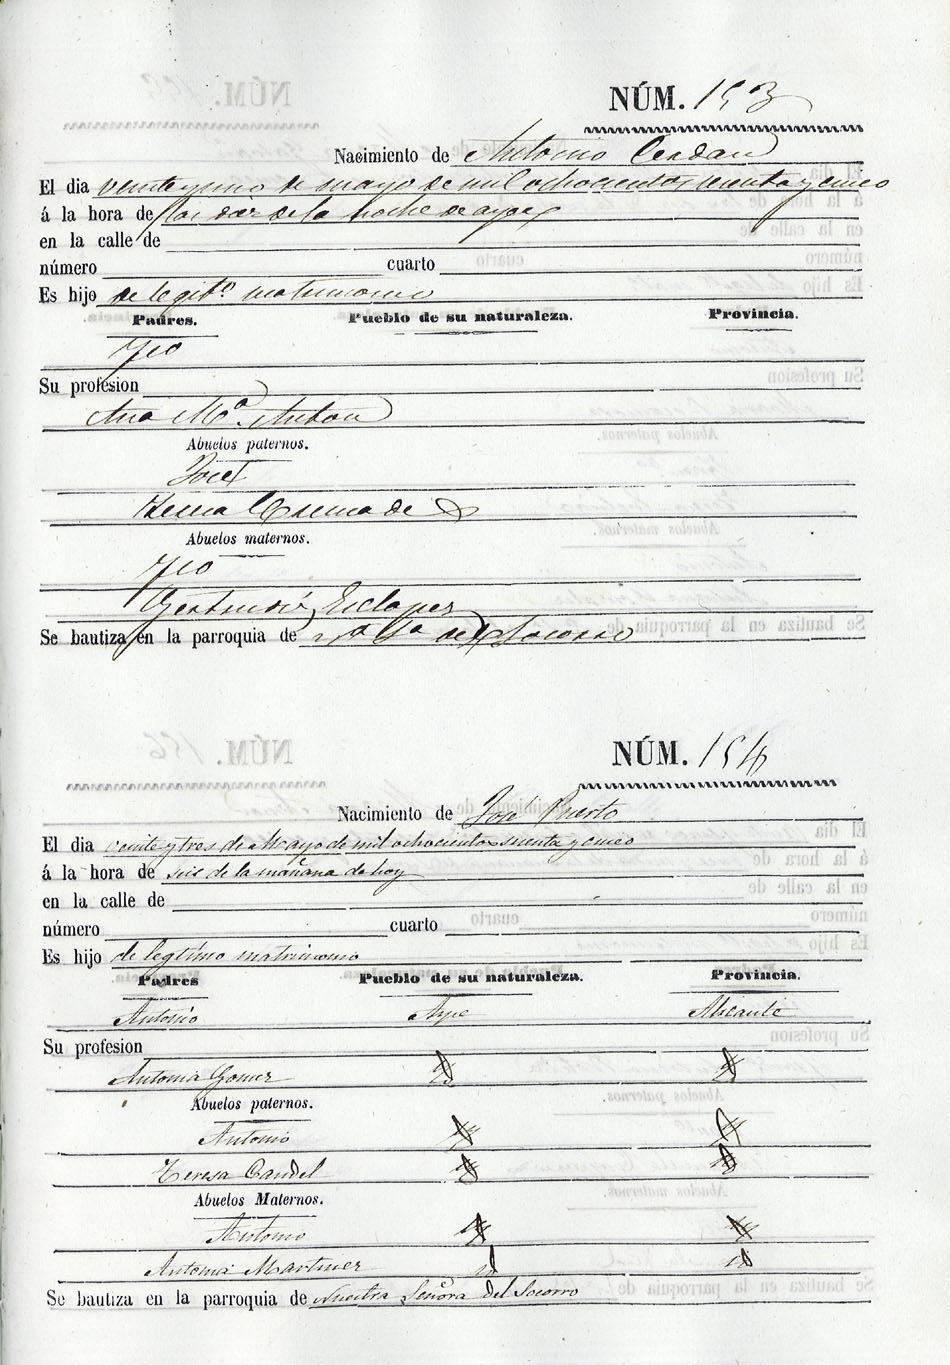 NÚM. 153
Nacimiento de Antonio Cerdan
El dia veinte y uno de mayo de mil ochocientos sesenta y cinco
á la hora de las diez de la noche de ayer
en la calle de
número cuarto
Es hijo de legit.º matrimonio
Padres. Pueblo de su naturaleza. Provincia.
Fco
Su profesion
Ana Mª. Anton
Abuelos paternos.
José
Teresa Cremades
Abuelos maternos.
Fco
Gertrudis Esclapez
Se bautiza en la parroquia de Nª Sª del Socorro
NÚM. 154
Nacimiento de José Puerto
El dia veinte y tres de Mayo de mil ochocientos sesenta y cinco
á la hora de seis de la mañana de hoy
en la calle de
número cuarto
Es hijo de legtimo matrimonio
Padres Pueblo de su naturaleza. Provincia.
Antonio Aspe Alicante
Su profesion
Antonia Gomez
Abuelos paternos.
Antonio
Teresa Candel
Abuelos Maternos.
Antonio
Antonia Martinez
Se bautiza en la parroquia de Nuestra Señora del Socorro